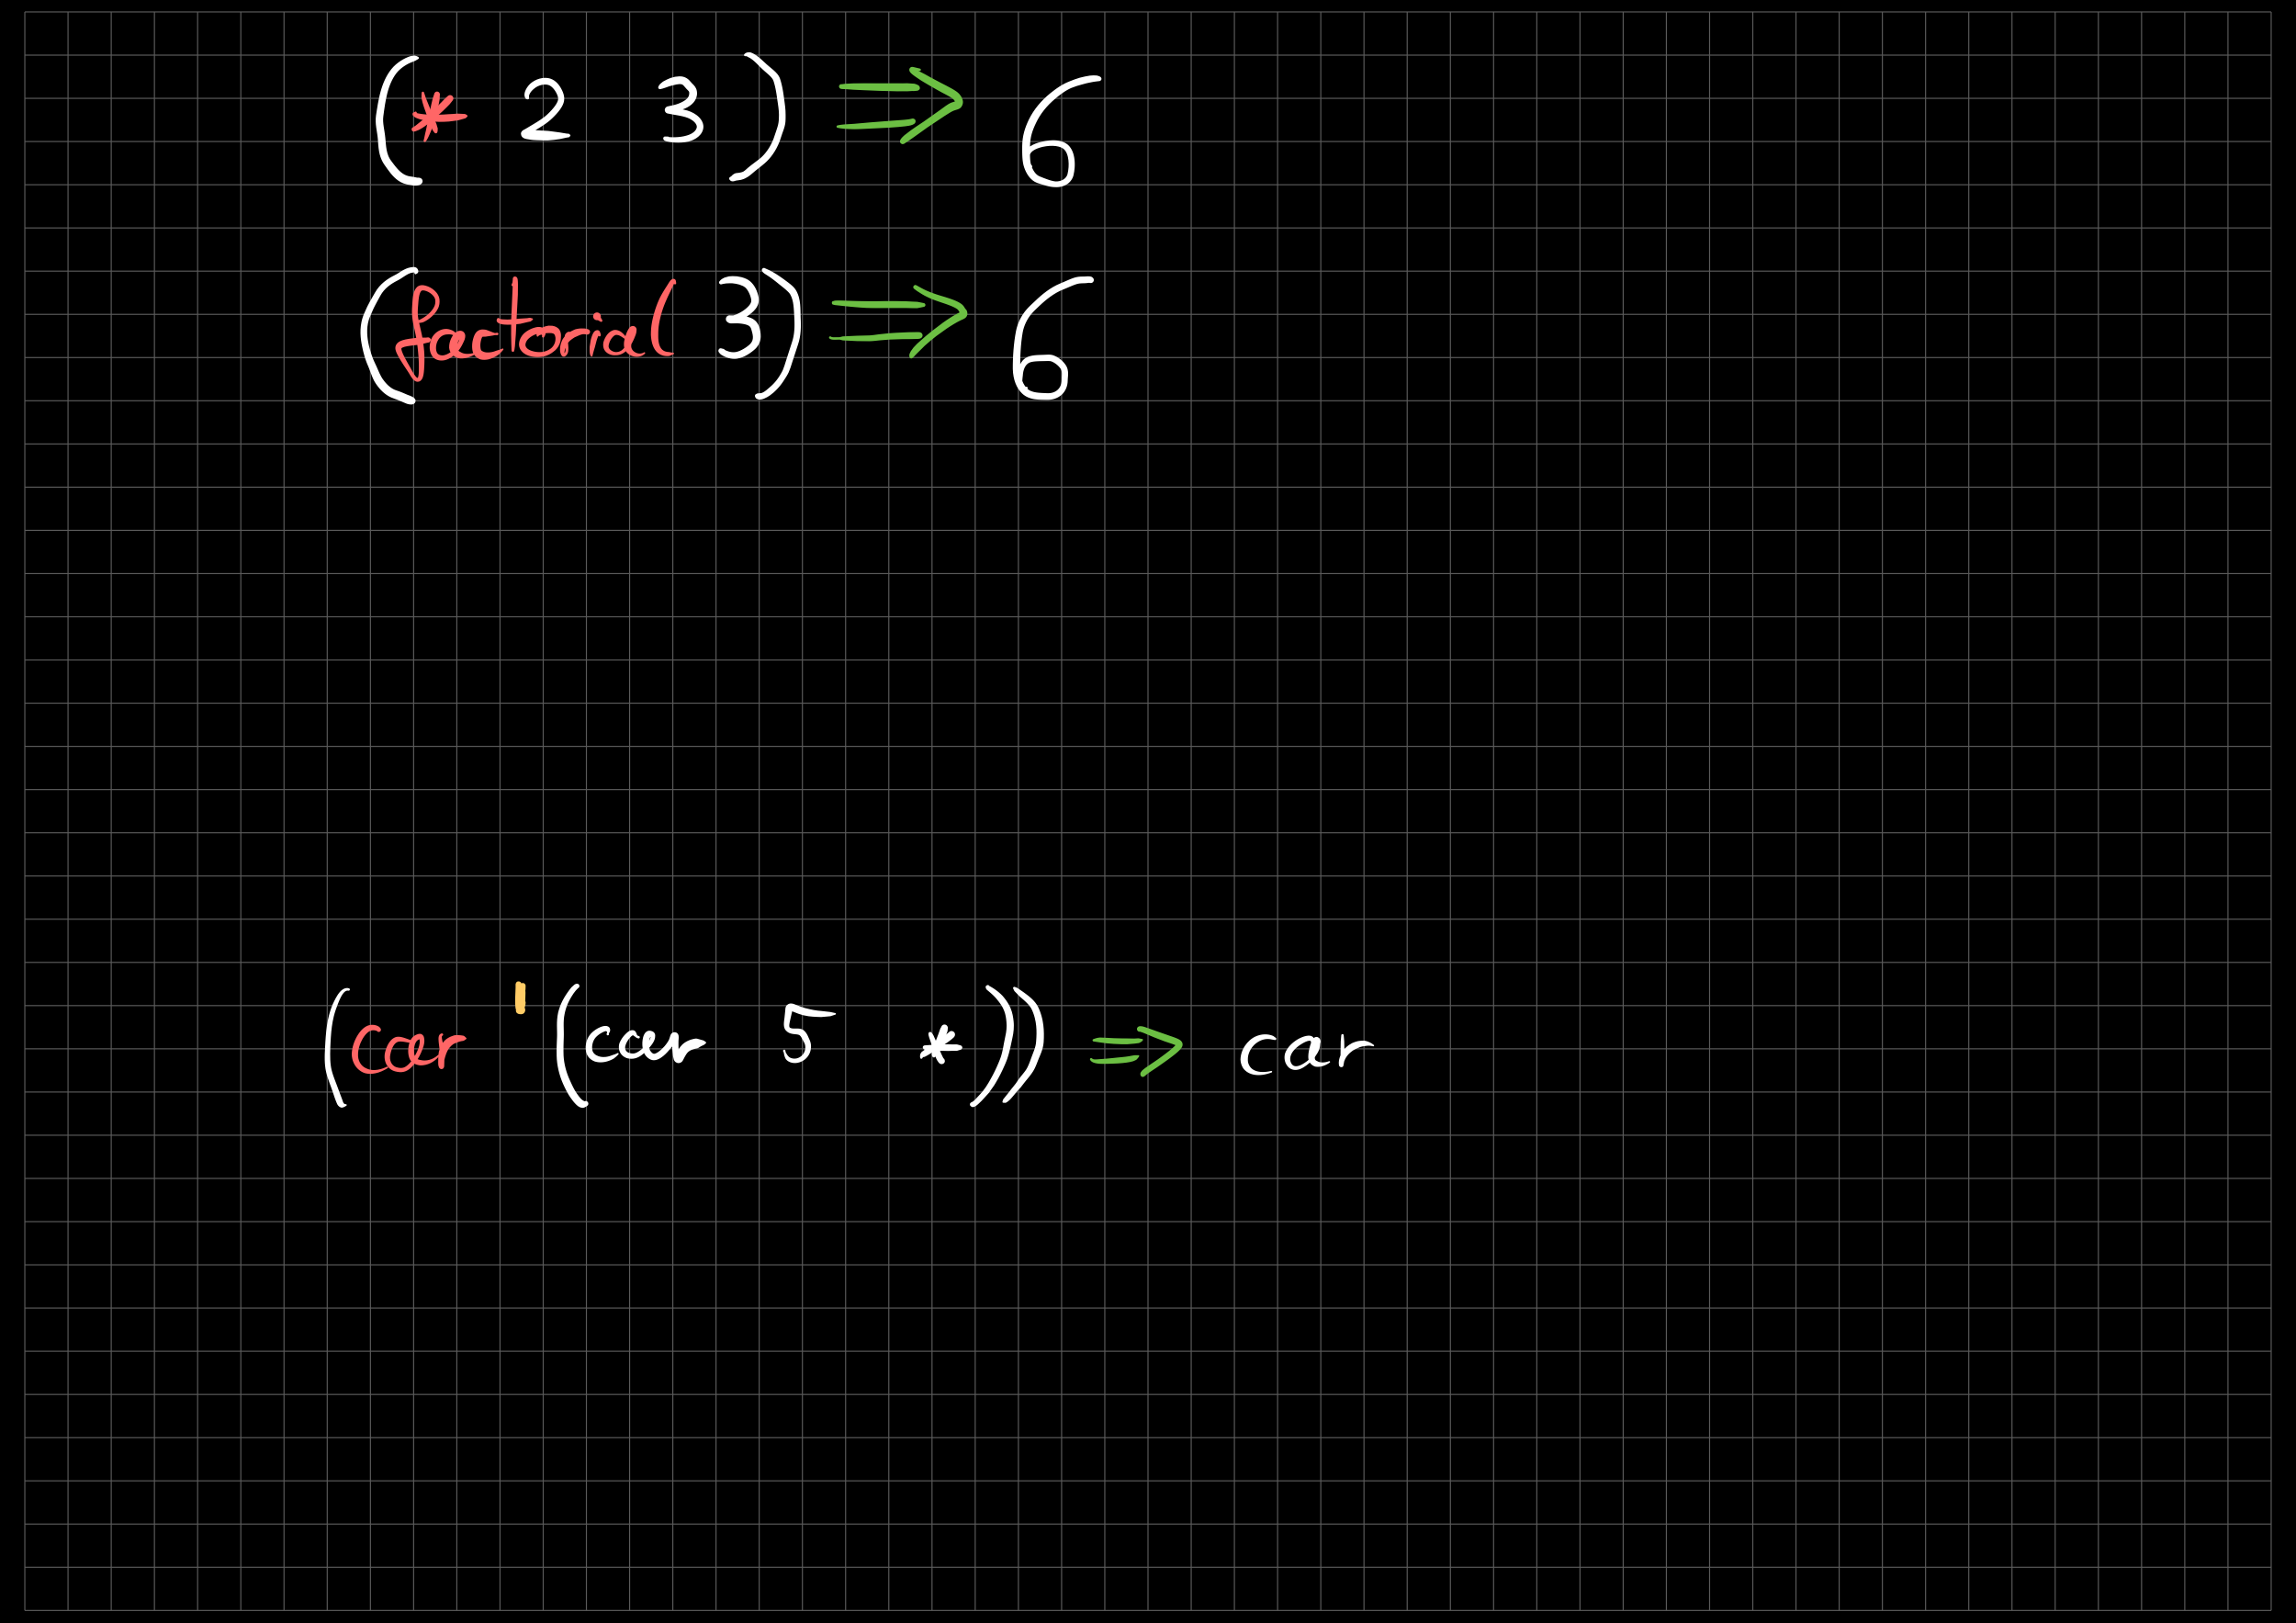 (* 2 3) => 6
(factorial 3) => 6
(car '(car 5 *)) => car